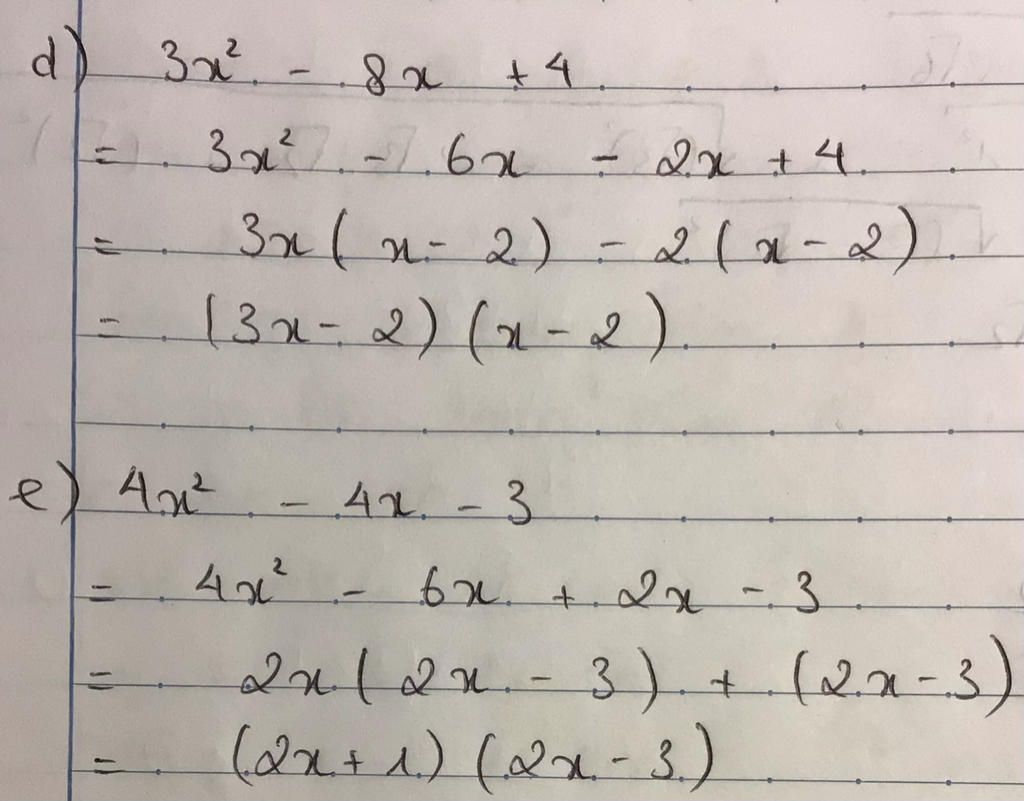 d) 3x² - 8x + 4
= 3x² - 6x - 2x + 4
= 3x ( x - 2 ) - 2 ( x - 2 )
= ( 3x - 2 ) ( x - 2 )
e) 4x² - 4x - 3
= 4x² - 6x + 2x - 3
= 2x ( 2x - 3 ) + ( 2x - 3 )
= ( 2x + 1 ) ( 2x - 3 )